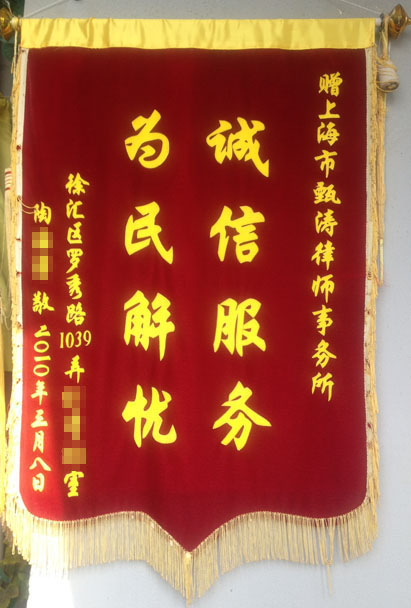 赠上海市甄涛律师事务所
诚信服务
为民解忧
徐汇区罗秀路1039弄室
陶敬二〇一〇年三月八日